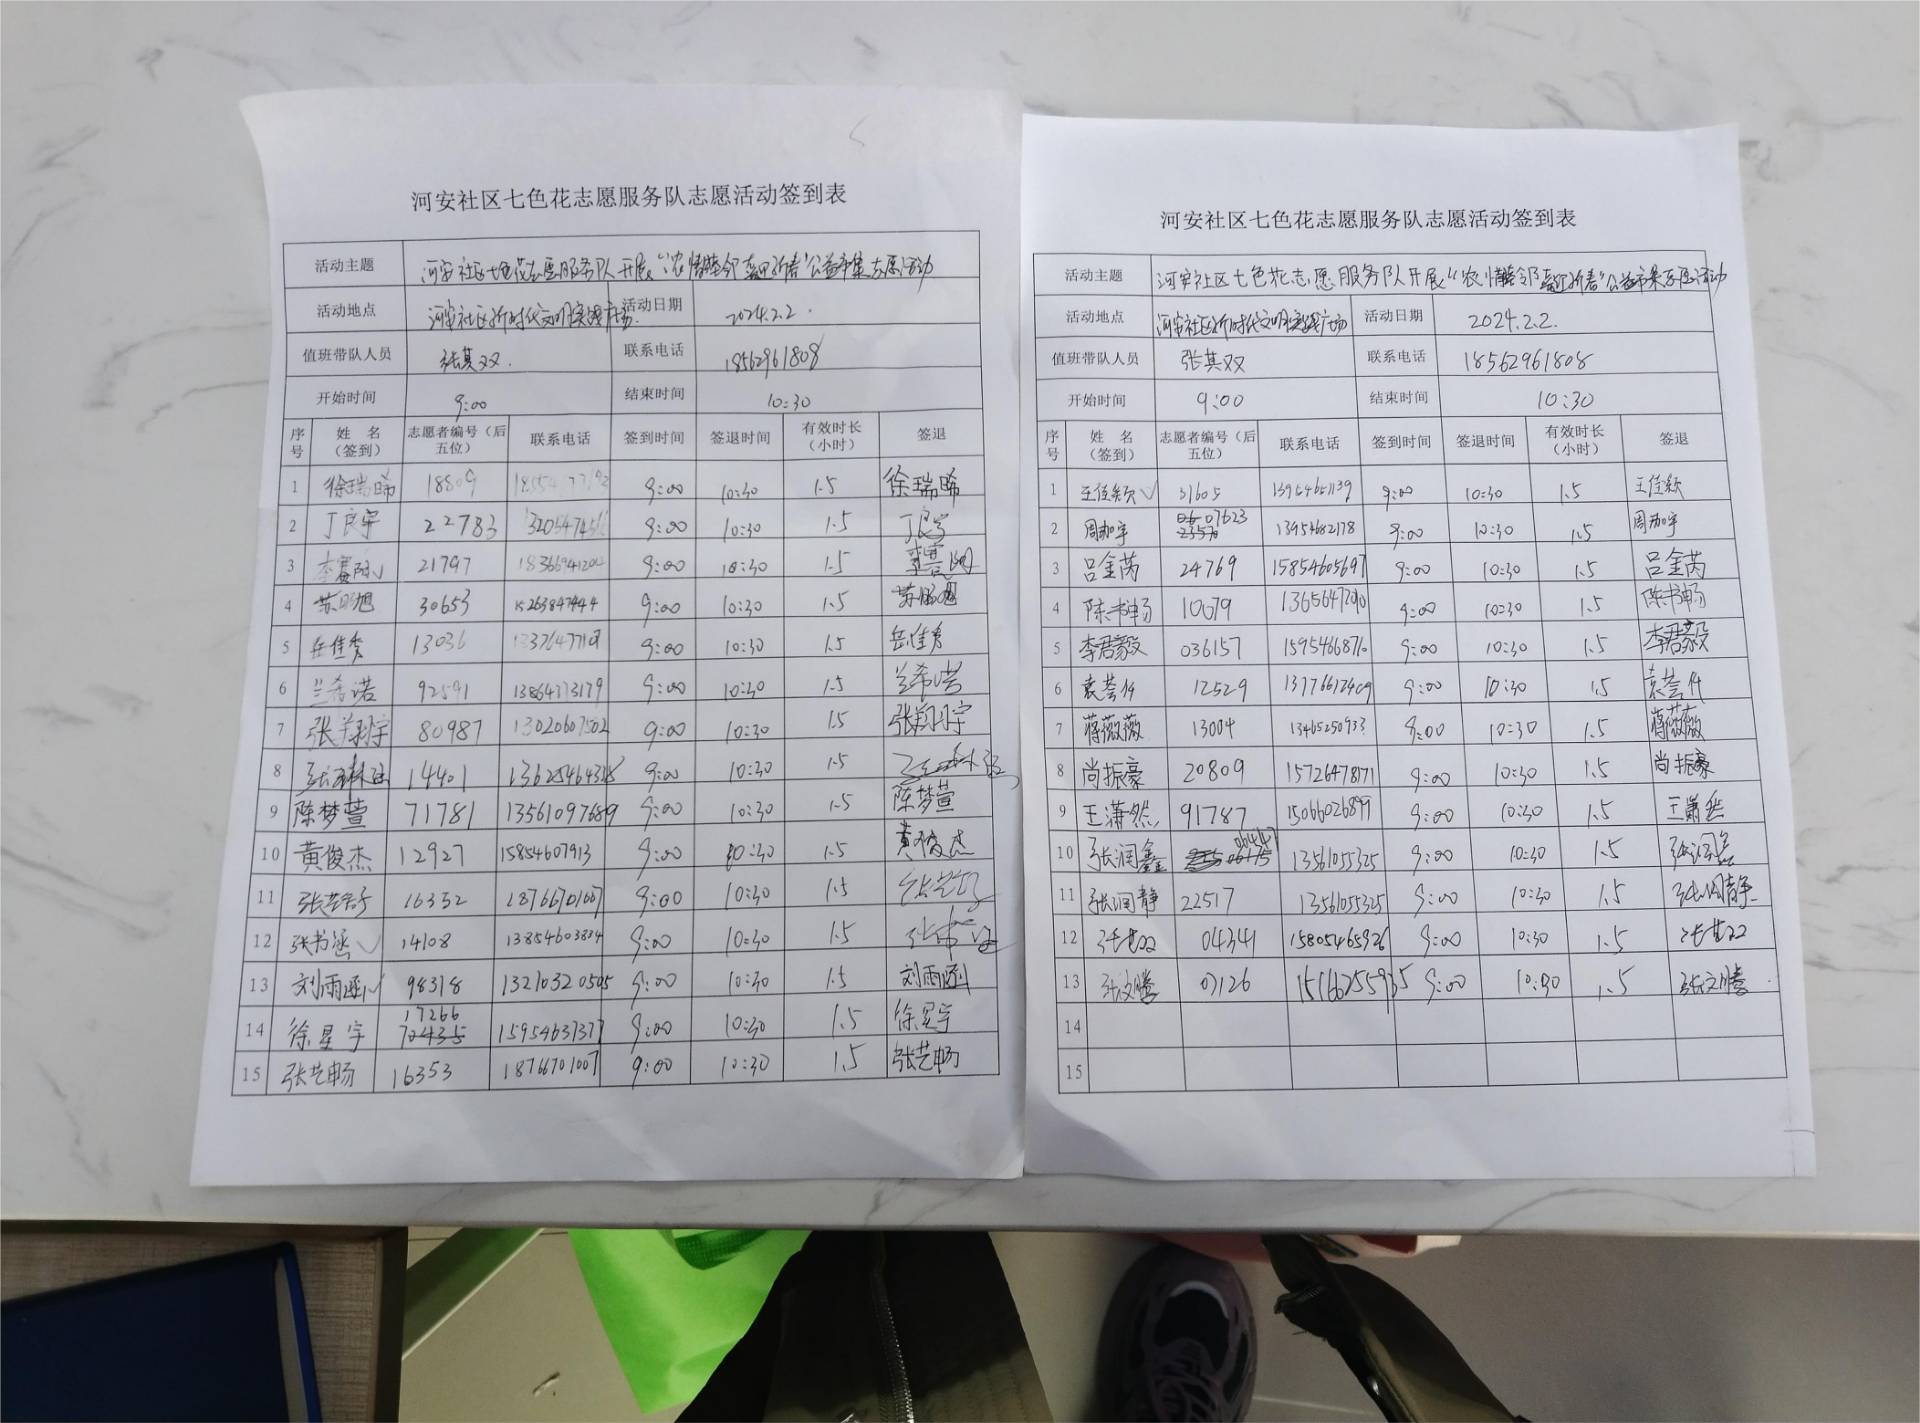 河安社区七色花志愿服务队志愿活动签到表
活动主题 河安社区七色花志愿服务队开展“浓情睦邻 喜迎新春”公益市集志愿活动
活动地点 河安社区新时代文明实践广场 活动日期 2024.2.2.
值班带队人员 张其双. 联系电话 18562961808
开始时间 9:00 结束时间 10:30
序号 姓 名（签到） 志愿者编号（后五位） 联系电话 签到时间 签退时间 有效时长（小时） 签退
1 徐瑞晞 18809 9:00 10:30 1.5 徐瑞晞
2 丁良宇 22783 9:00 10:30 1.5 丁良宇
3 21797 9:00 10:30 1.5
4 30653 15263847444 9:00 10:30 1.5
5 岳佳秀 13036 9:00 10:30 1.5 岳佳秀
6 兰希诺 92591 13864773179 9:00 10:30 1.5 兰希诺
7 张翔宇 80987 13020607502 9:00 10:30 1.5 张翔宇
8 14401 9:00 10:30 1.5
9 陈梦萱 71781 13561097689 9:00 10:30 1.5 陈梦萱
10 黄俊杰 12927 15854607913 9:00 10:30 1.5 黄俊杰
11 16352 18766701007 9:00 10:30 1.5
12 张书涵 14108 13854603834 9:00 10:30 1.5
13 刘雨涵 98318 13210320505 9:00 10:30 1.5 刘雨涵
14 徐星宇 17266 72435 15954637377 9:00 10:30 1.5 徐星宇
15 张艺畅 16353 18766701007 9:00 10:30 1.5 张艺畅
河安社区七色花志愿服务队志愿活动签到表
活动主题 河安社区七色花志愿服务队开展“浓情睦邻 喜迎新春”公益市集志愿活动
活动地点 河安社区新时代文明实践广场 活动日期 2024.2.2.
值班带队人员 张其双 联系电话 18562961808
开始时间 9:00 结束时间 10:30
序号 姓 名（签到） 志愿者编号（后五位） 联系电话 签到时间 签退时间 有效时长（小时） 签退
1 王佳颖 31605 13954651139 9:00 10:30 1.5 王佳颖
2 07623 13954682178 9:00 10:30 1.5
3 吕金芮 24769 15854605697 9:00 10:30 1.5 吕金芮
4 陈书畅 10079 1365647390 9:00 10:30 1.5 陈书畅
5 李君毅 036157 15954668710 9:00 10:30 1.5 李君毅
6 12529 13776612409 9:00 10:30 1.5
7 蒋薇薇 13004 13465250933 9:00 10:30 1.5 蒋薇薇
8 尚振豪 20809 15726478171 9:00 10:30 1.5 尚振豪
9 王潇然 91787 15066026899 9:00 10:30 1.5 王潇然
10 张润鑫 13561055325 9:00 10:30 1.5 张润鑫
11 张润静 22517 13561055325 9:00 10:30 1.5 张润静
12 张其双 04341 15805465926 9:00 10:30 1.5 张其双
13 张文腾 07126 15166255935 9:00 10:30 1.5 张文腾
14
15